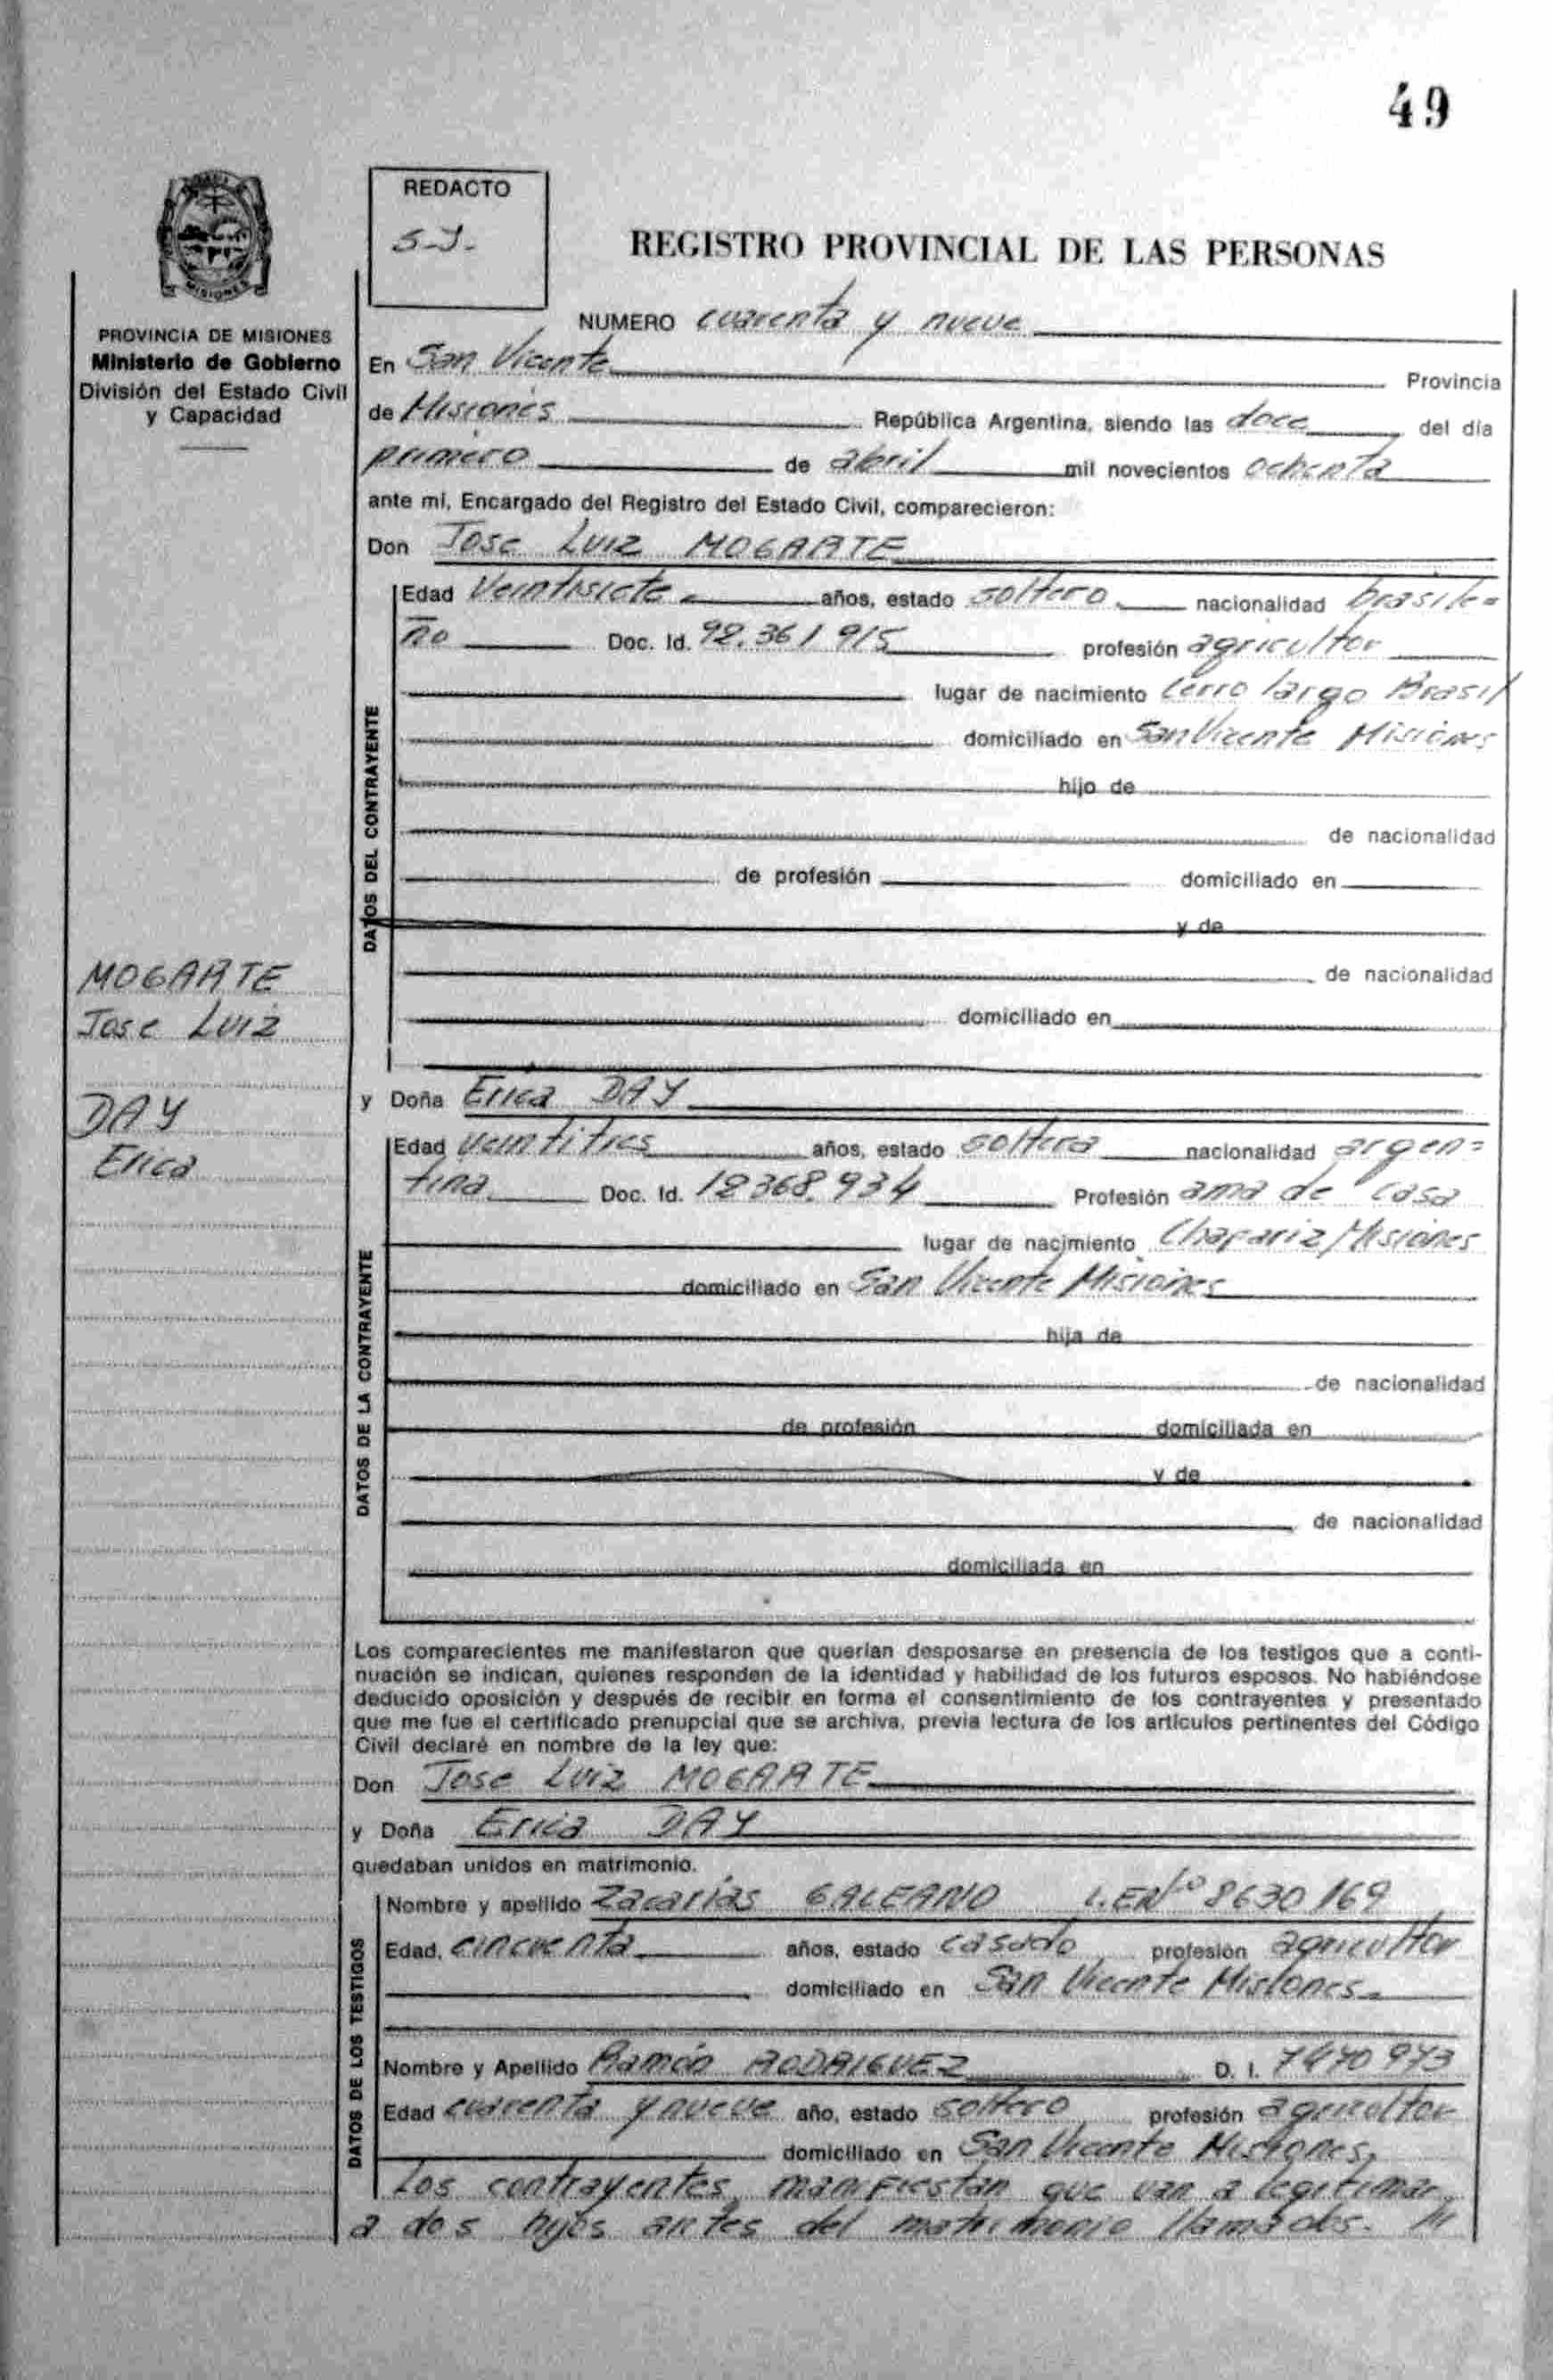 49
REDACTO
S-J-
REGISTRO PROVINCIAL DE LAS PERSONAS
MISIONES
PROVINCIA DE MISIONES
Ministerio de Gobierno
División del Estado Civil
y Capacidad
NUMERO cuarenta y nueve
En San Vicente Provincia
de Misiones República Argentina, siendo las doce del día
primero de abril mil novecientos ochenta
ante mí, Encargado del Registro del Estado Civil, comparecieron:
Don Jose Luiz MOGARTE
DATOS DEL CONTRAYENTE
Edad Veintisiete años, estado soltero nacionalidad brasile=
ño Doc. Id. 92.361915 profesión agricultor
lugar de nacimiento Cerro largo Brasil
domiciliado en San Vicente Misiones
hijo de
de nacionalidad
de profesión domiciliado en
y de
de nacionalidad
domiciliado en
MOGARTE
Jose Luiz
DAY
Erica
y Doña Erica DAY
DATOS DE LA CONTRAYENTE
Edad veintitres años, estado soltera nacionalidad argen=
tina Doc. Id. 12368.934 Profesión ama de casa
lugar de nacimiento Misiones
domiciliado en San Vicente Misiones
hija de
de nacionalidad
de profesión domiciliada en
y de
de nacionalidad
domiciliada en
Los comparecientes me manifestaron que querían desposarse en presencia de los testigos que a conti-
nuación se indican, quienes responden de la identidad y habilidad de los futuros esposos. No habiéndose
deducido oposición y después de recibir en forma el consentimiento de los contrayentes y presentado
que me fue el certificado prenupcial que se archiva, previa lectura de los artículos pertinentes del Código
Civil declaré en nombre de la ley que:
Don Jose Luiz MOGARTE
y Doña Erica DAY
quedaban unidos en matrimonio.
DATOS DE LOS TESTIGOS
Nombre y apellido Zacarias GALEANO L.E.Nº 8630169
Edad, cincuenta años, estado casado profesión agricultor
domiciliado en San Vicente Misiones
Nombre y Apellido Ramón RODRIGUEZ D. I. 7470973
Edad cuarenta y nueve año, estado soltero profesión agricultor
domiciliado en San Vicente Misiones,
Los contrayentes manifiestan que van a legitimar
a dos hijos antes del matrimonio llamados. ///